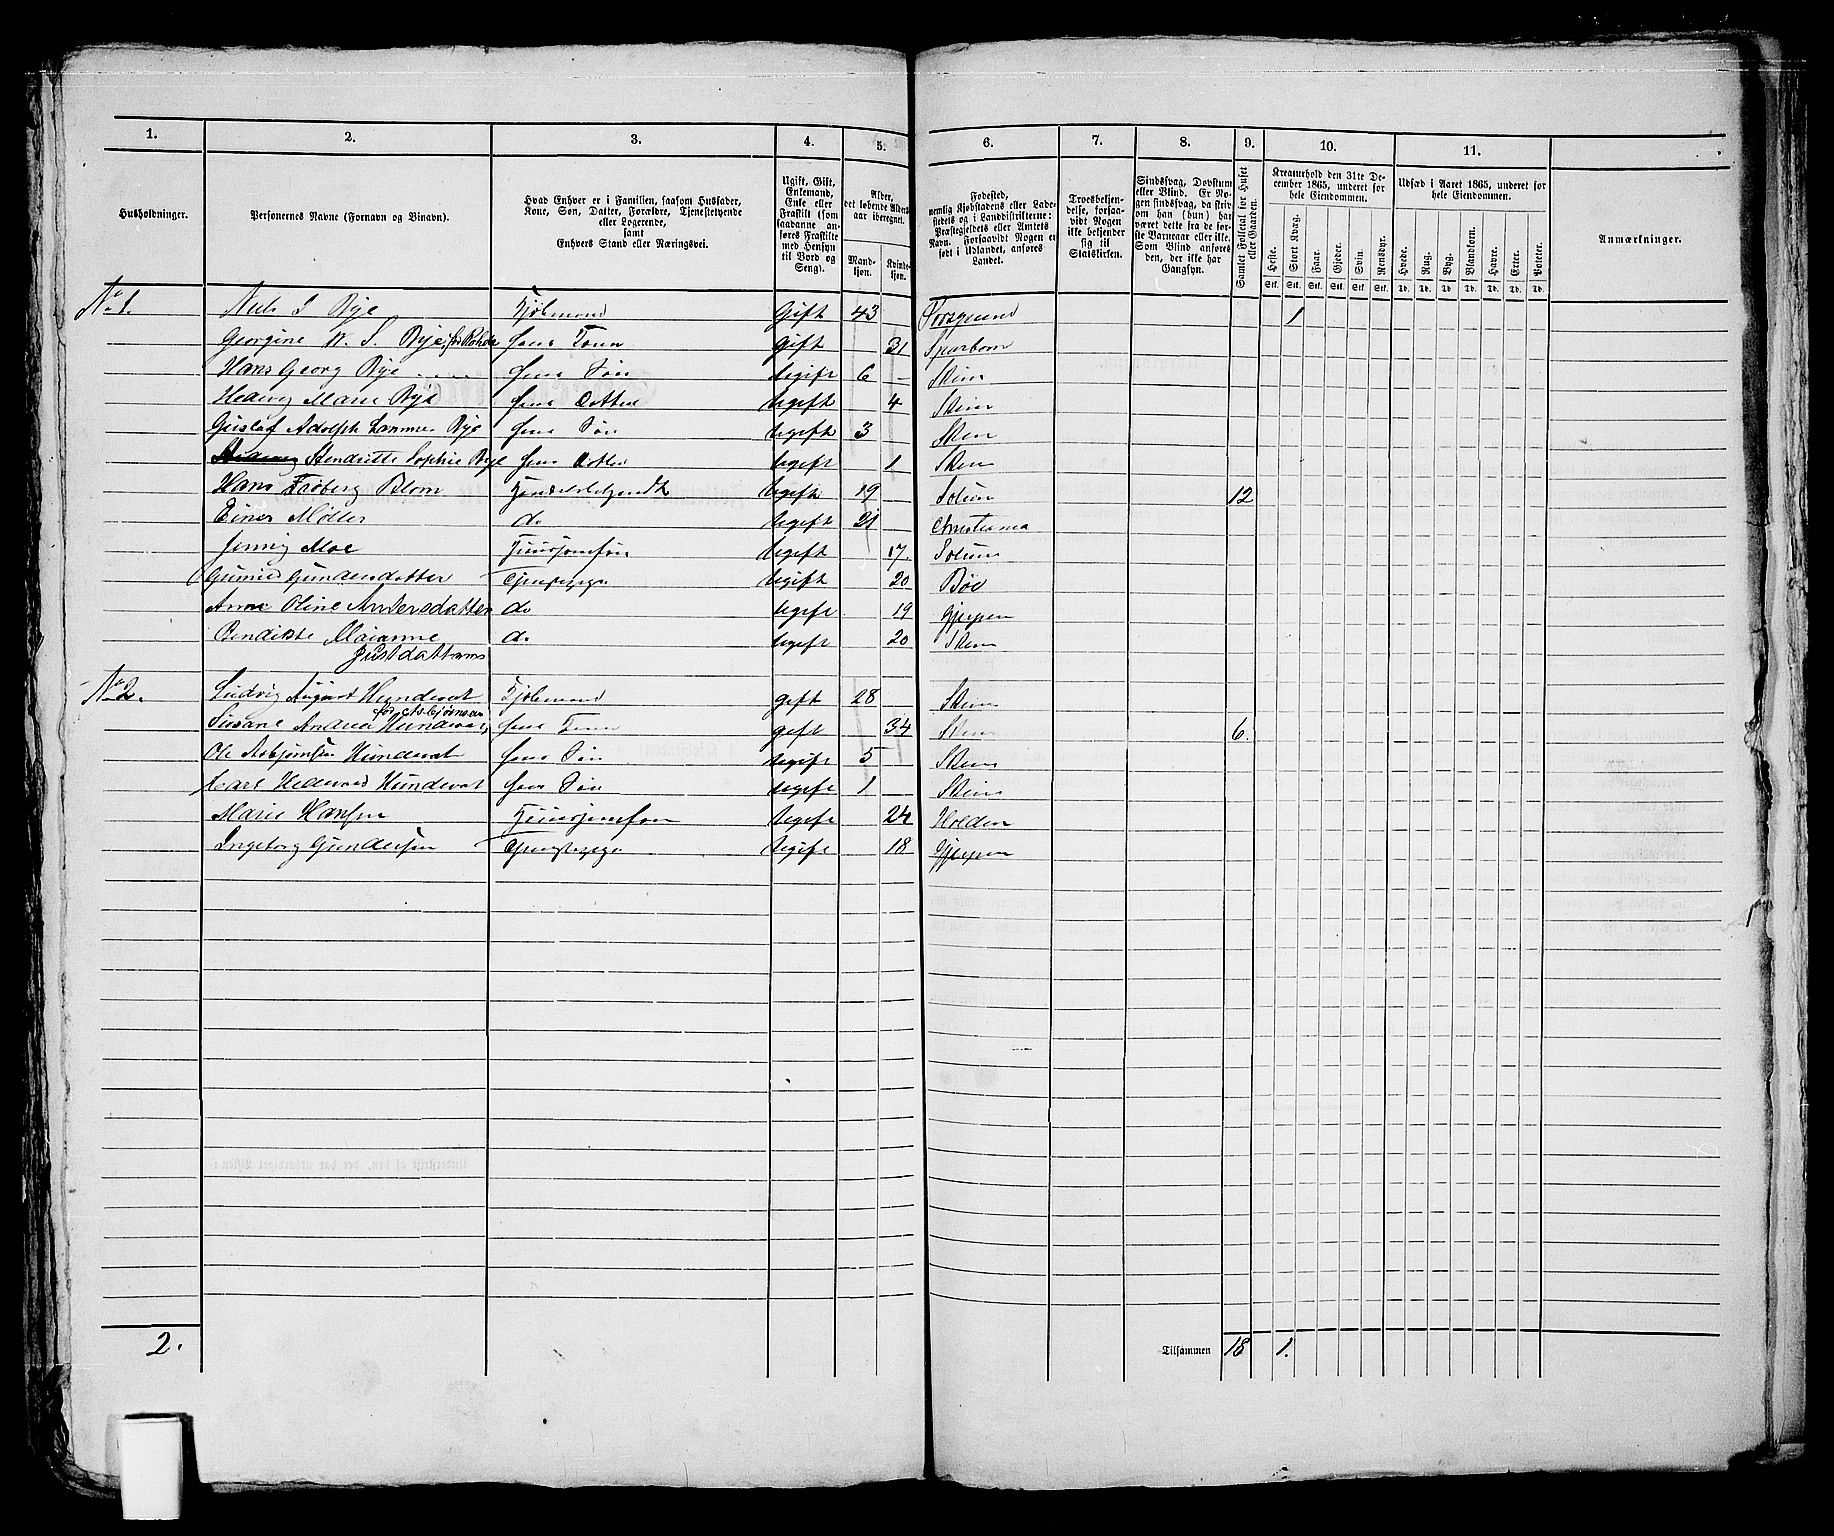 1. 2. 3. 4. 5. 6. 7. 8. 9. 10. 11.
Husholdninger.
Personernes Navne (Fornavn og Binavn).
Hvad Enhver er i Familien, saasom Husfader,
Kone, Søn, Datter, Forældre, Tjenestetyende
eller Logerende,
samt
Enhvers Stand eller Næringsvei.
Ugift, Gift,
Enkemand,
Enke eller
Fraskilt (som
saadanne an-
føres Fraskilte
med Hensyn
til Bord og
Seng).
Alder,
det løbende Alders-
aar iberegnet.
Mand-
kjøn.
Kvinde-
kjøn.
Fødested,
nemlig Kjøbstadens eller Lade-
stedets og i Landdistrikterne:
Præstegjeldets eller Amtets
Navn. Forsaavidt Nogen er
født i Udlandet, anføres
Landet.
Troesbekjen-
delse, forsaa-
vidt Nogen
ikke bekjender
sig til
Statskirken.
Sindssvag, Døvstum
eller Blind. Er No-
gen sindssvag, da skriv
om han (hun) har
været dette fra de før-
ste Barneaar eller ikke.
Som Blind anføres
den, der ikke har
Gangsyn.
Samlet Folketal for Huset
eller Gaarden.
Kreaturhold den 31te De-
cember 1865, underet for
hele Eiendommen.
Heste. Stort Kvæg. Faar. Gjeder. Svin. Rensdyr.
Stk. Stk. Stk. Stk. Stk. Stk.
Udsæd i Aaret 1865, underet for
hele Eiendommen.
Hvede. Rug. Byg. Blandkorn. Havre. Erter. Poteter.
Td. Td. Td. Td. Td. Td. Td.
Anmærkninger.
No 1. Niels J Rye Kjøbmand Gift 43 Porsgrund 1
Georgine W. S. Rye, f. Rohde hans Kone gift 31 Sparboen
Hans Georg Rye hans Søn Ugift 6 Skien
Hedevig Marie Rye hans Datter Ugift 4 Skien
Gustaf Adolph Lammers Rye hans Søn Ugift 3 Skien
Henriette Sophie Rye hans Datter Ugift 1 Skien
Hans Blom Handelsbetjendt Ugift 19 Solum 12
Einer Møller do Ugift 21 Christiania
Jenny Moe Huusjomfru Ugift 17. Solum
Gunild Gundersdatter Tjenstepige Ugift 20 Bøe
Anne Oline Andersdatter do Ugift 19 Gjerpen
Bendikte Marianne do Ugift 20 Skien
No 2. Ludvig August Hundevat Kjøbmand gift 28 Skien
før Asbjørnsen
Susane Andrea Hundevat, hans Kone gift 34 Skien 6.
Ole Asbjørnsen Hundevat hans Søn Ugift 5 Skien
Carl Hundevat hans Søn Ugift 1 Skien
Marie Hansen Huusjomfru Ugift 24 Holden
Ingeborg Gundersen Tjenstepige Ugift 18 Gjerpen
2. Tilsammen 18 1.